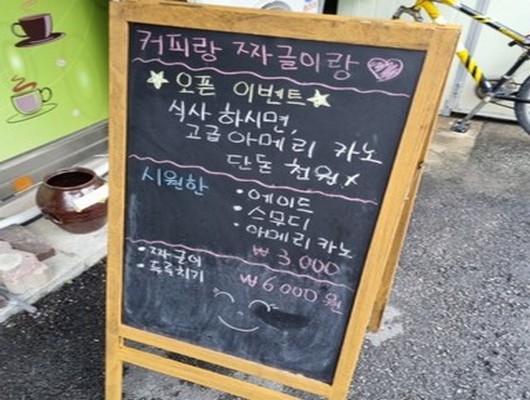 커피랑 짜글이랑
오픈 이벤트
식사 하시면,
고급 아메리 카노
단돈 천원
시원한
• 에이드
• 스무디
• 아메리카노
₩ 3,000
• 짜글이
• 두루치기
₩ 6000 원